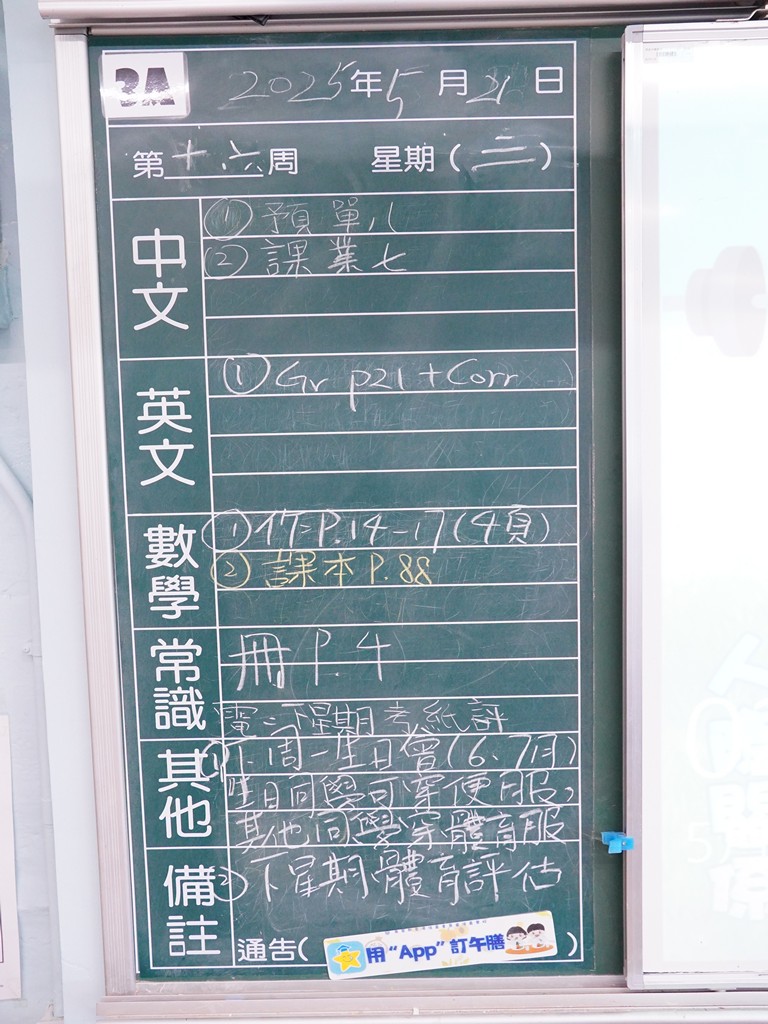 3A 2025年5月21日
第十六周 星期(三)
中文
① 預單八
② 課業七
英文
① Gr p21 + Corr
數學
① 作=P.14-17(4頁)
② 課本 P.88
常識
冊 P.4
電=下星期考紙評
其他
① 下周一生日會(6、7月)
生日同學可穿便服,
其他同學穿體育服
備註
② 下星期體育評估
通告( 用“App”訂午膳 )